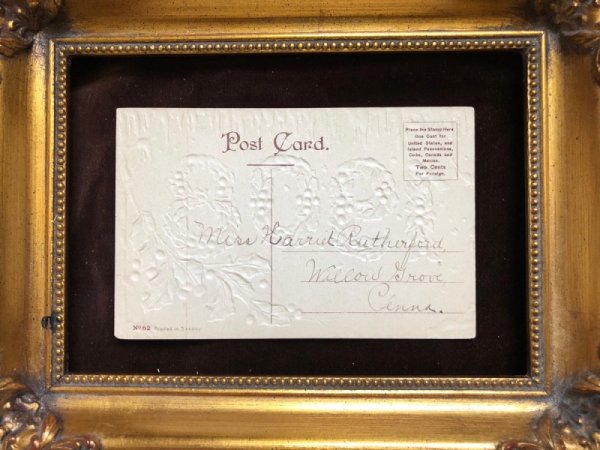 Post Card.
Place the Stamp Here
One Cent for
United States, and
Island Possessions,
Cuba, Canada and
Mexico.
Two Cents
For Foreign.
Miss Harriet Rutherford,
Willow Grove
Penna.
No. 62 Printed in Saxony